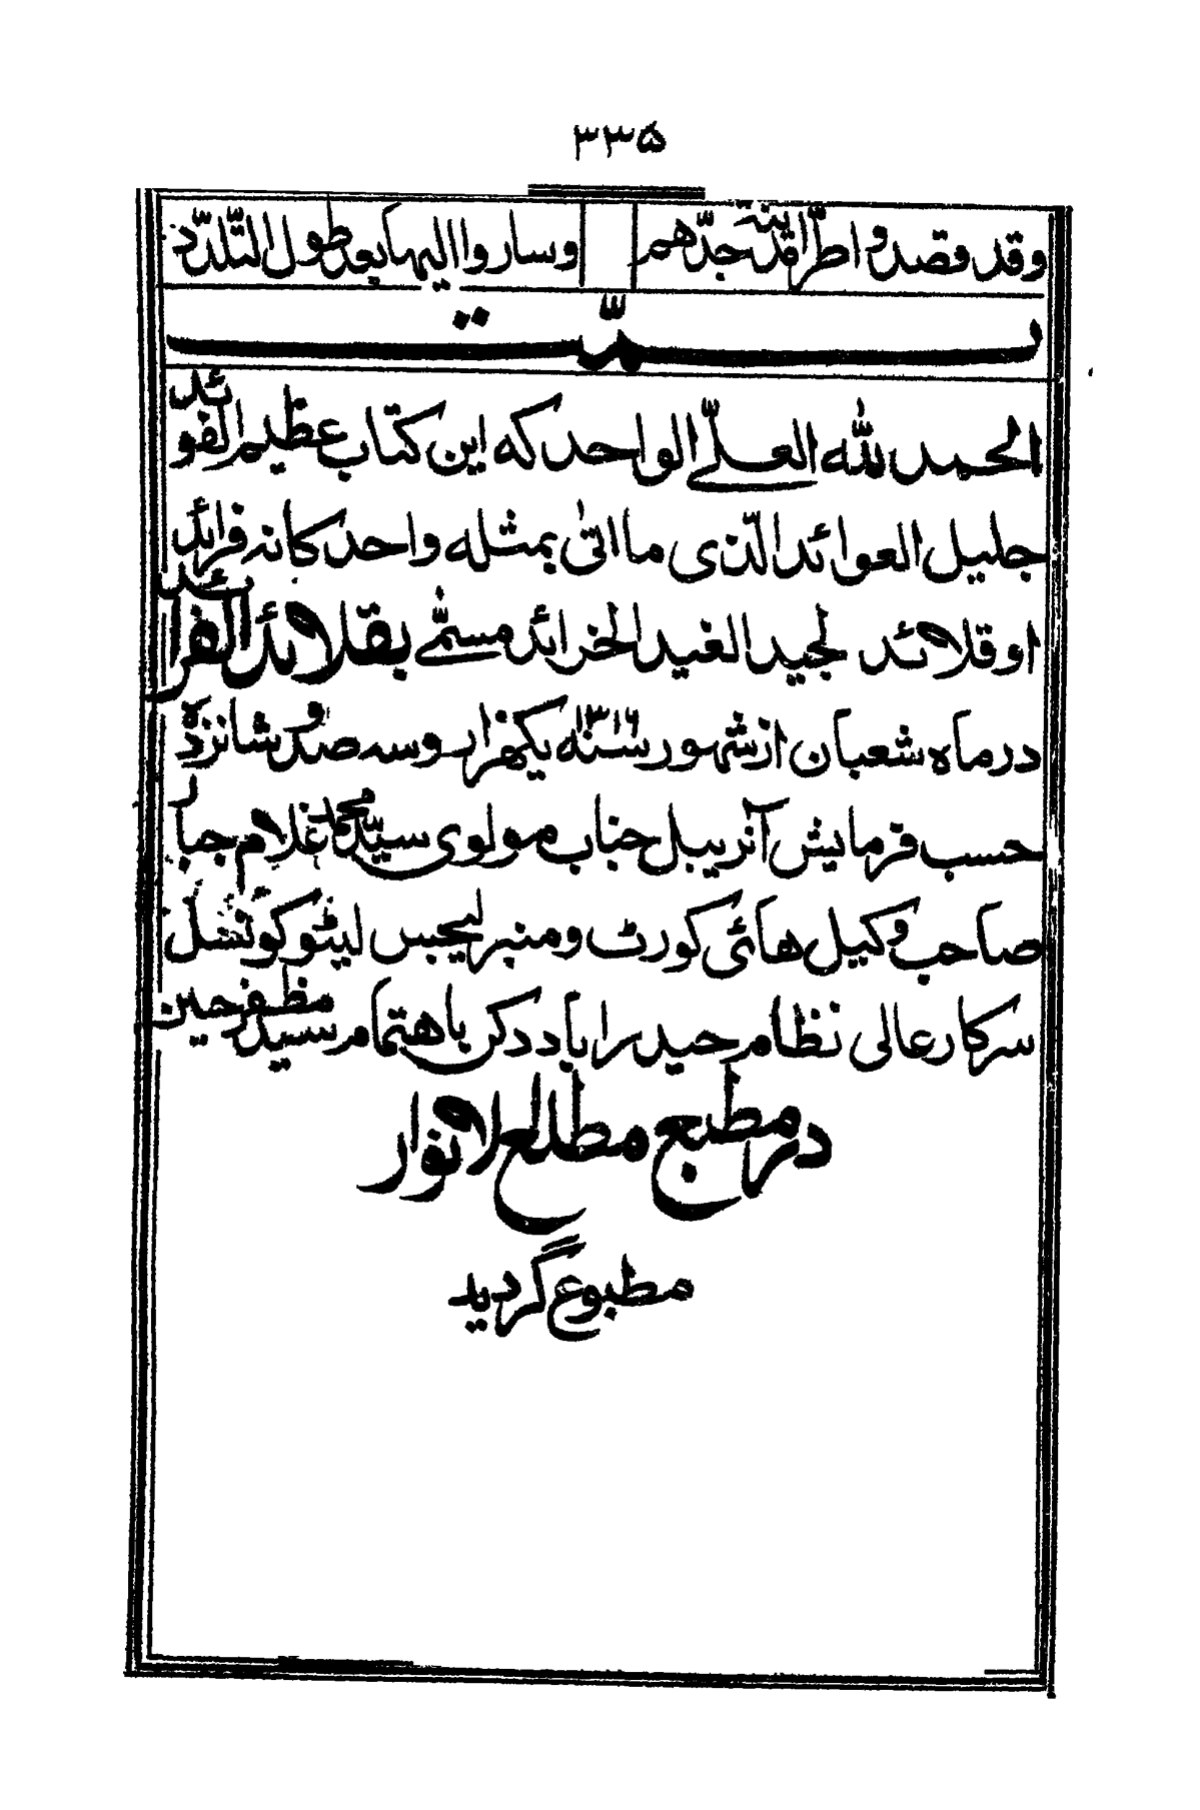 ۳۳۵
وقد قصدوا طرّا مدينة جدّهم وساروا اليها بعد طول التلدّد
تمّت
الحمد لله العلیّ الواحد که این کتاب عظیم الفوائد
جلیل العوائد الّذی ما اتیٰ بمثله واحد کانه فرائد
او قلائد لجید الغید الخرائد مسمّٰی بقلائد الفرائد
در ماه شعبان از شهور سنه ۱۳۱۶ یکهزار و سه صد و شانزده
حسب فرمایش آنریبل جناب مولوی سیّد محمد غلام جبار
صاحب وکیل هائی کورٹ و منبر لیجبس لیٹو کونسل
سرکار عالی نظام حیدراباد دکن باهتمام سید مظفر حسین
در مطبع مطلع الانوار
مطبوع گردید